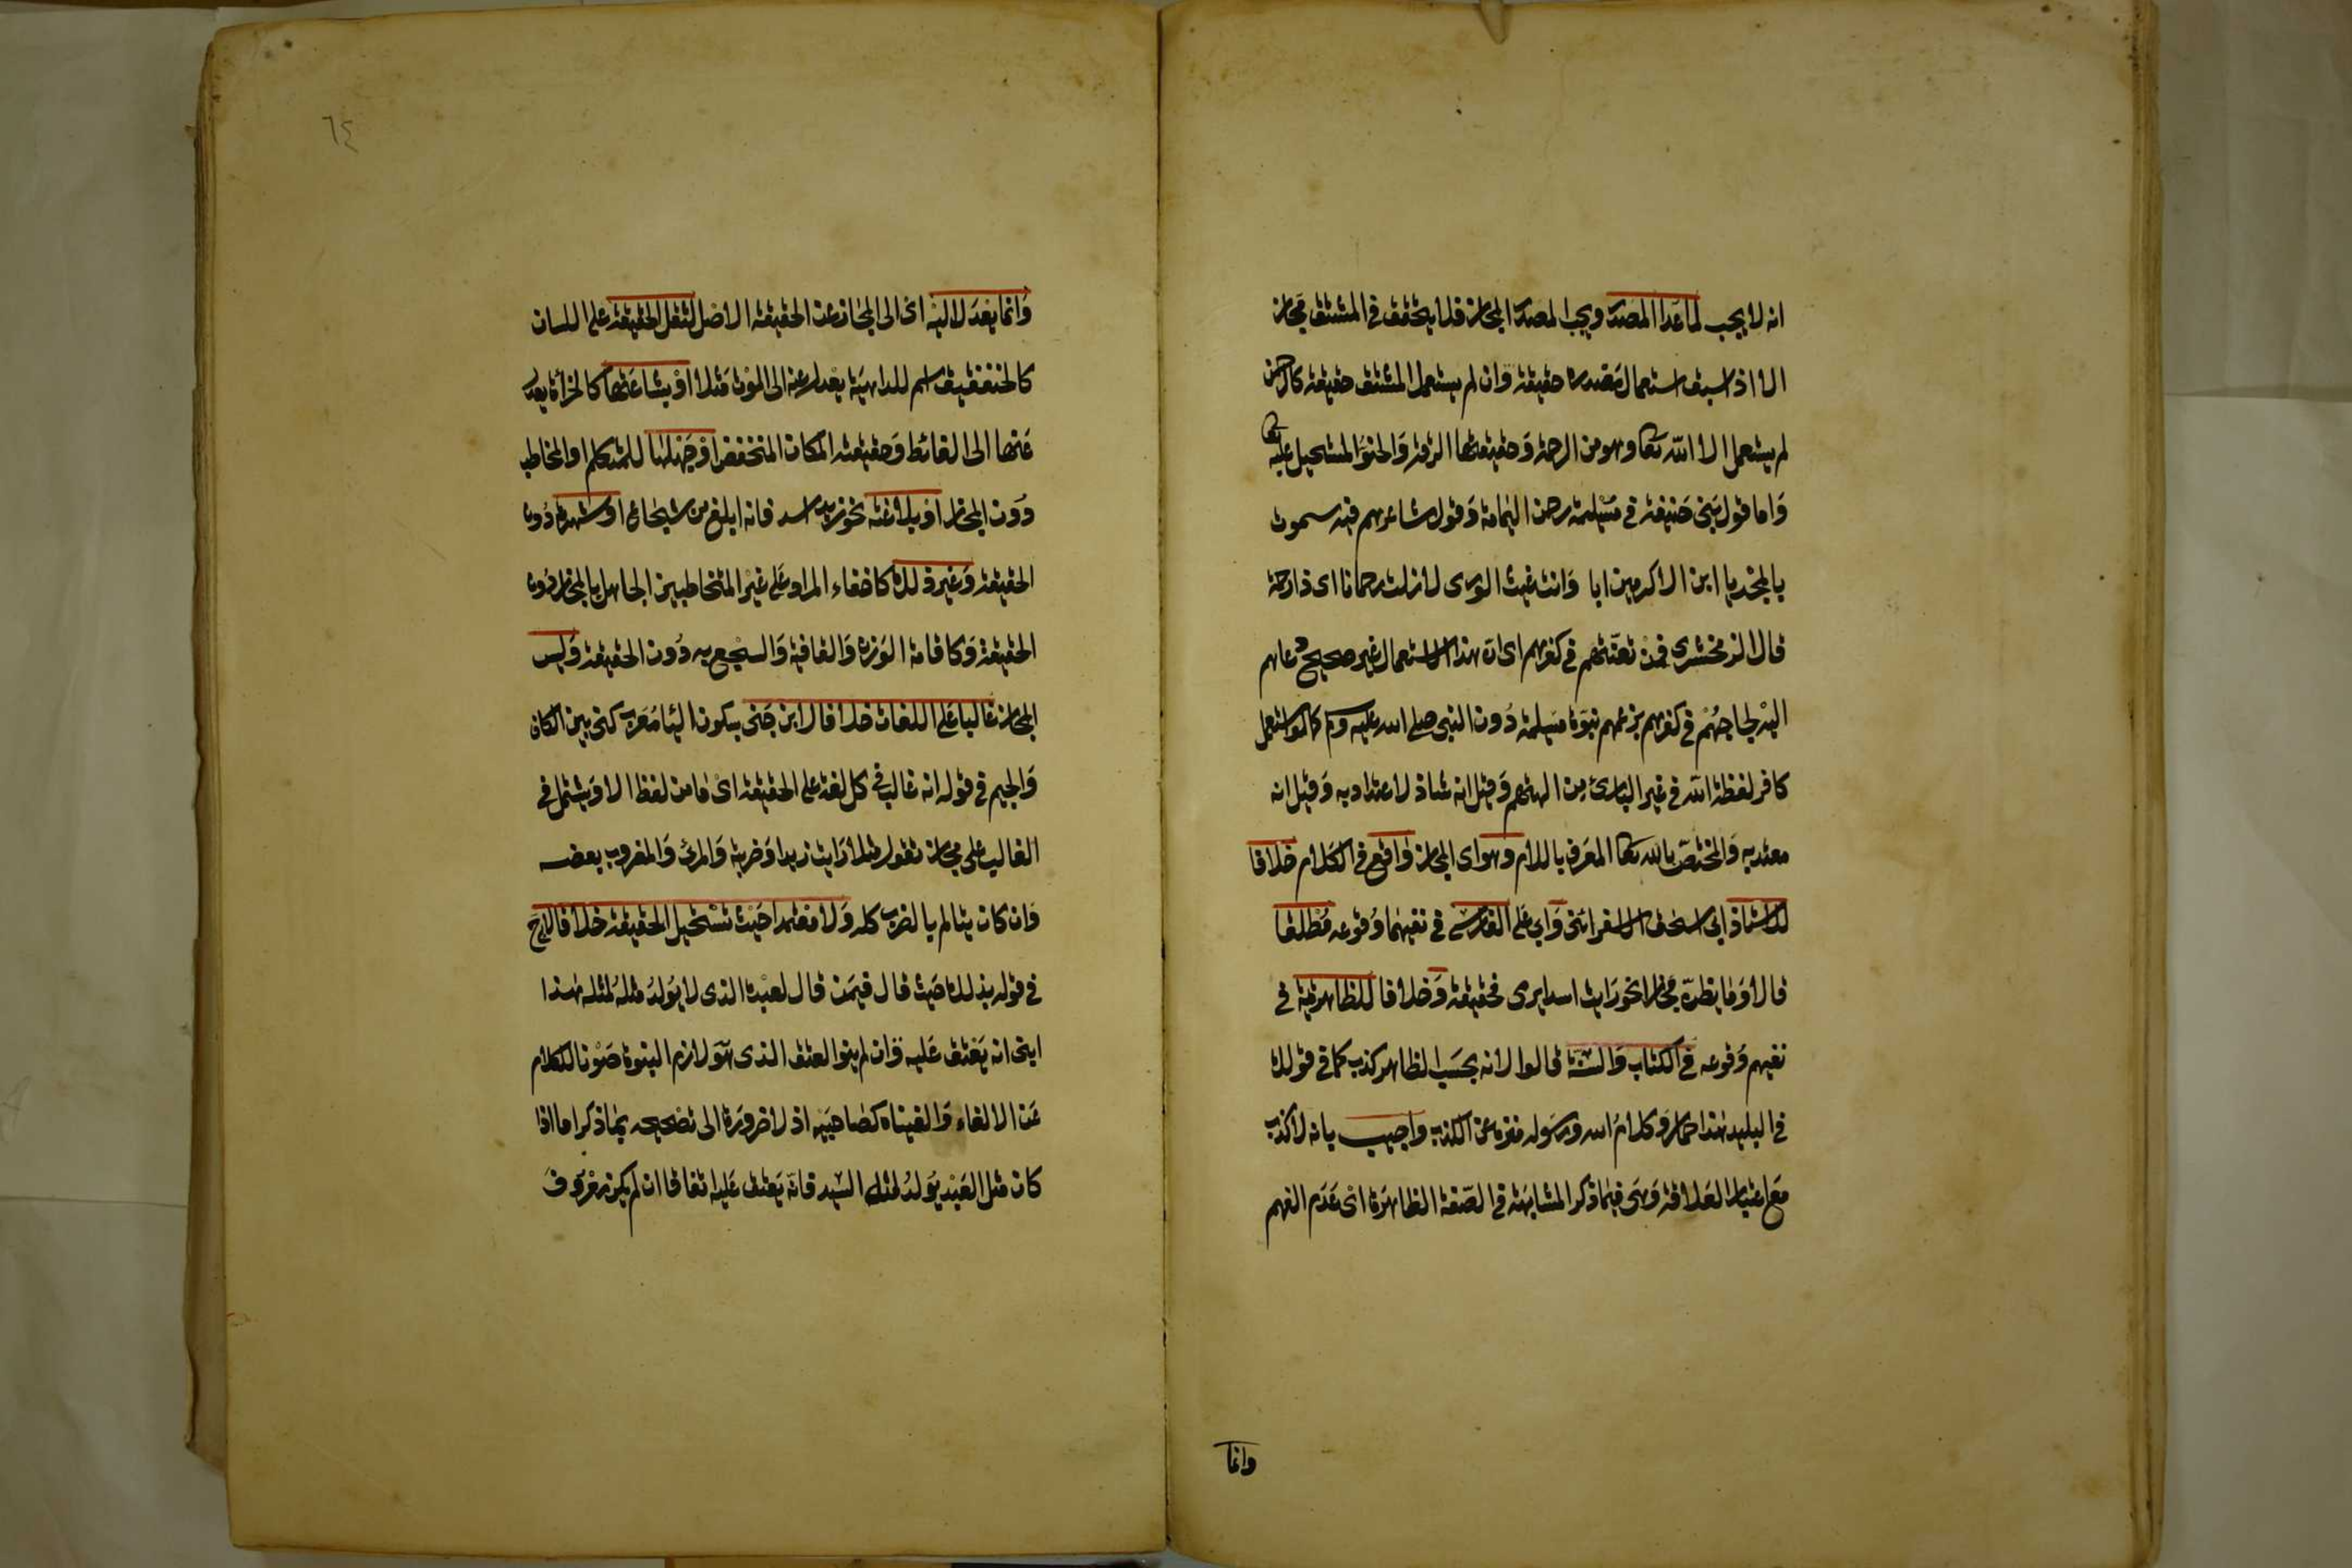 انه لا يجب لما عدا المصدر ويجب لمصدر المجاز فلا يتحقق في المشتق مجاز
الا اذا سبق استعمال مصدره حقيقة وان لم يستعمل المشتق حقيقة كالرحمن
لم يستعمل الا لله تعا وهو من الرحمة وحقيقتها الرقة والحنو المستحيل عليه تعا
واما قول بني حنيفة في مسيلمة رحمن اليمامة وقول شاعرهم فيه سموت
بالمجد يا ابن الاكرمين ابا وانت غيث الورى لازلت رحمانا اى ذا رحمة
قال الزمخشري فمن تعنتهم في كفرهم اى ان هذا الاستعمال غير صحيح دعاهم
اليه لجاجهم في كفرهم بزعمهم نبوة مسيلمة دون النبي صلى الله عليه وسلم كما لو استعمل
كافر لفظة الله في غير البارئ من الهتهم وقيل انه شاذ لا اعتداد به وقيل انه
معتد به والمختص بالله تعا المعرف باللام وهو اى المجاز واقع في الكلام خلافا
للاستاذ ابي اسحق الاسفرائني وابي على الفارسي في نفيهما وقوعه مطلقا
قالا وما يظن مجازا نحو رايت اسدا يرمى فحقيقة وخلافا للظاهرية في
نفيهم وقوعه في الكتاب والسنة قالوا لانه بحسب الظاهر كذب كما في قولك
في البليد هذا حمار وكلام الله ورسوله منزه عن الكذب واجيب بانه لا كذب
مع اعتبار العلاقة وهى فيما ذكر المشابهة في الصفة الظاهرة اى عدم الفهم
وانما
٦٤
وانما يعدل اليه اى الى المجاز عن الحقيقة الاصل لثقل الحقيقة على اللسان
كالخنفقيق اسم للداهية يعدل عنه الى الموت مثلا او بشاعتها كالخراة يعدل
عنها الى الغائط وحقيقته المكان المنخفض او جهلها للمتكلم او المخاطب
دون المجاز او بلاغته نحو زيد اسد فانه ابلغ من شجاع او شهرة دون
الحقيقة وغير ذلك كاخفاء المراد على غير المتخاطبين الجاهل بالمجاز دون
الحقيقة وكاقامة الوزن والقافية والسجع به دون الحقيقة وليس
المجاز غالبا على اللغات خلافا لابن جني بسكون اليا معرب كنى بين الكاف
والجيم في قوله انه غالب في كل لغة على الحقيقة اى ما من لفظ الا ويشتمل في
الغالب على مجاز تقول مثلا رايت زيدا وضربته والمرئ والمضروب بعضه
وان كان يتالم بالضرب كله ولا معتمدا حيث تستحيل الحقيقة خلافا لابي ح
في قوله بذلك حيث قال فيمن قال لعبده الذى لا يولد مثله لمثله هذا
ابني انه يعتق عليه وان لم ينو العتق الذى هو لازم البنوة صونا للكلام
عن الالغاء والغيناه كصاحبيه اذ لا ضرورة الى تصحيحه بما ذكر اما اذا
كان مثل العبد يولد لمثل السيد فانه يعتق عليه اتفاقا ان لم يكن معروف